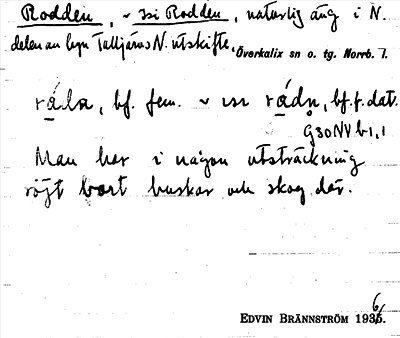 Rodden, ~ isi Rodden, naturlig äng i N.
delen av byn Talljärvs N. utskifte, Överkalix sn o. tg. Norrb. l.
råda, bf. fem. ~ isi rádn, bf. f. dat.
G30NV b1,1
Man har i någon utsträckning
röjt bort buskar och skog där.
EDVIN BRÄNNSTRÖM 1936.